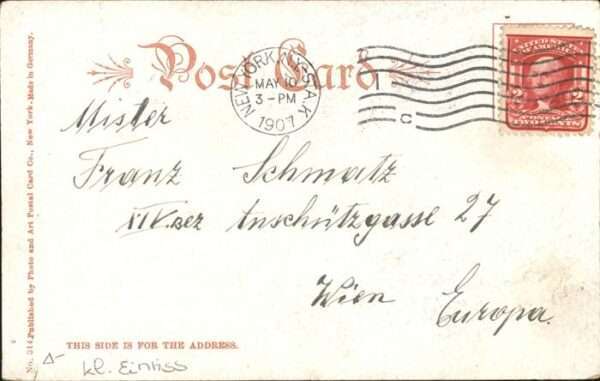 Post Card
NEW YORK, N.Y.
MAY 10
3-PM
1907
1
C
UNITED STATES
OF AMERICA
2 2
POSTAGE
TWO CENTS
Mister
Franz Schmatz
XIV. Bez Anschützgasse 27
Wien Europa.
THIS SIDE IS FOR THE ADDRESS.
kl. Einriss
No. 314 Published by Photo and Art Postal Card Co., New York - Made in Germany.